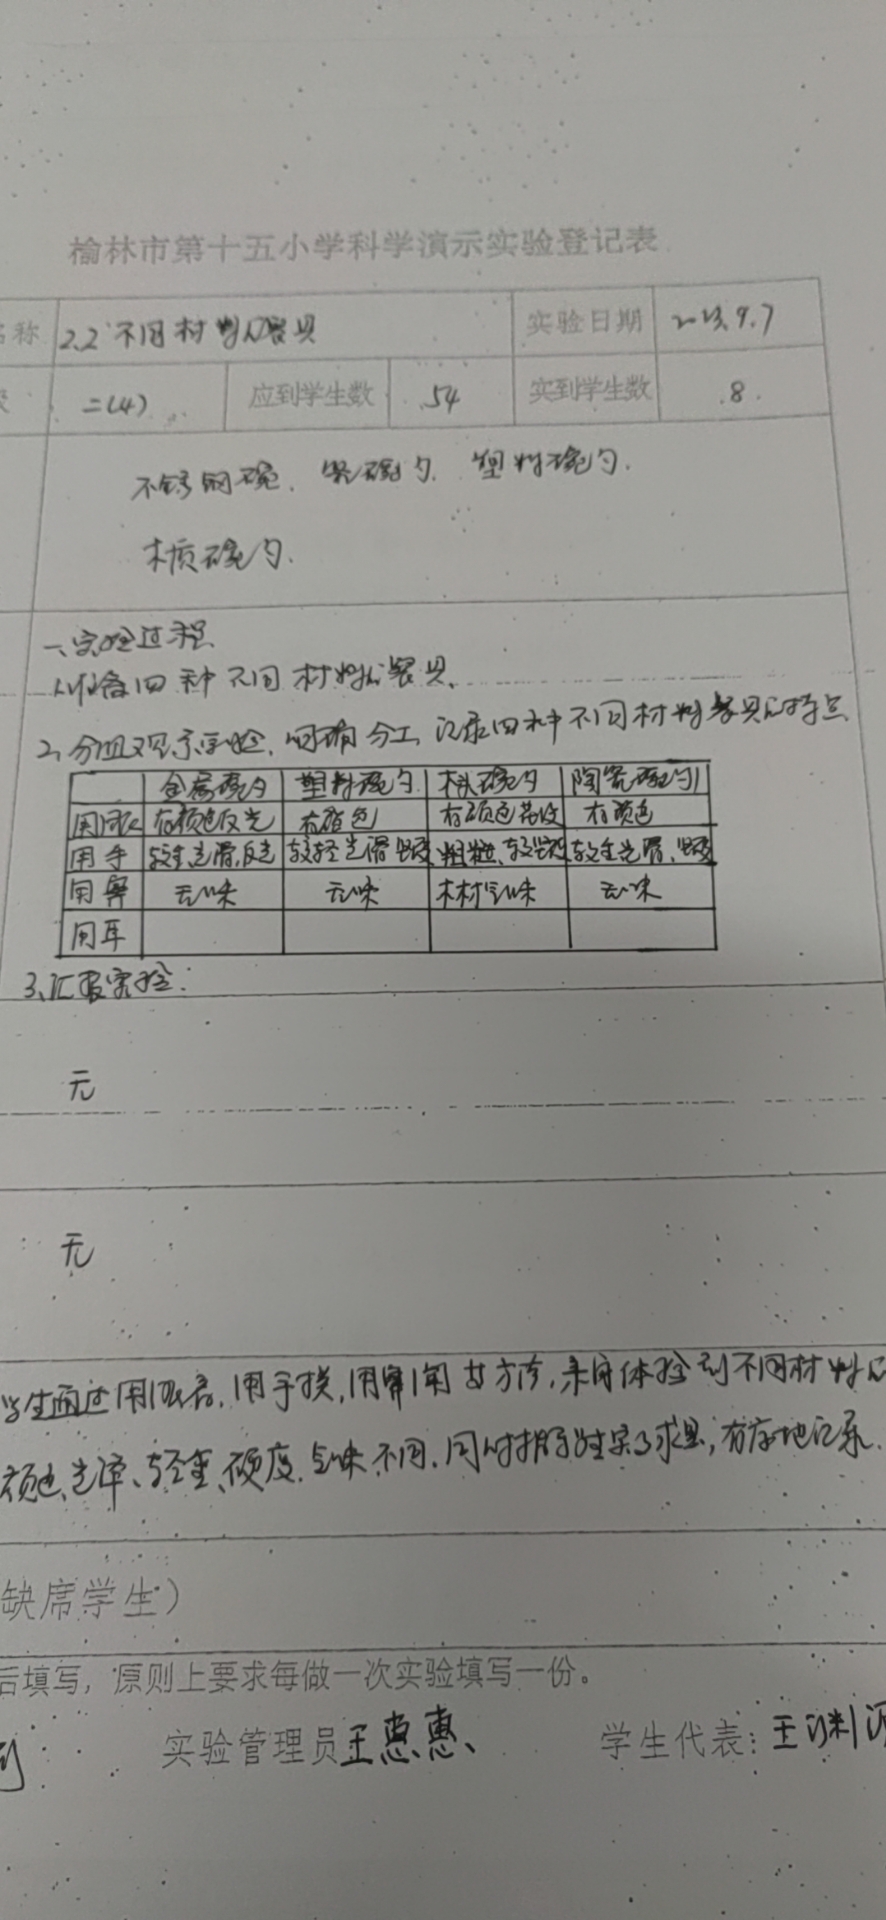 榆林市第十五小学科学演示实验登记表
名称 2.2 不同材料的餐具 实验日期 2023.9.7
二(4) 应到学生数 54 实到学生数 8.
不锈钢碗、瓷碗勺、塑料碗勺、
木质碗勺.
一、实验过程
1、准备四种不同材料的餐具、
2、分组观察实验,明确分工,记录四种不同材料餐具的特点
金属碗勺 塑料碗勺 木头碗勺 陶瓷碗勺
用眼 有颜色反光 有颜色 有颜色花纹 有颜色
用手 较重,光滑,反光 较轻光滑 坚硬 粗糙、较坚硬 较重光滑、坚硬
用鼻 无味 无味 木材气味 无味
用耳
3、汇报实验:
无
无
学生通过用眼看,用手摸,用鼻闻等方法,亲身体验到不同材料的
颜色、光泽、轻重、硬度、气味不同,同时指导学生实事求是,有序地记录.
缺席学生)
后填写,原则上要求每做一次实验填写一份。
实验管理员 王惠惠、 学生代表:王